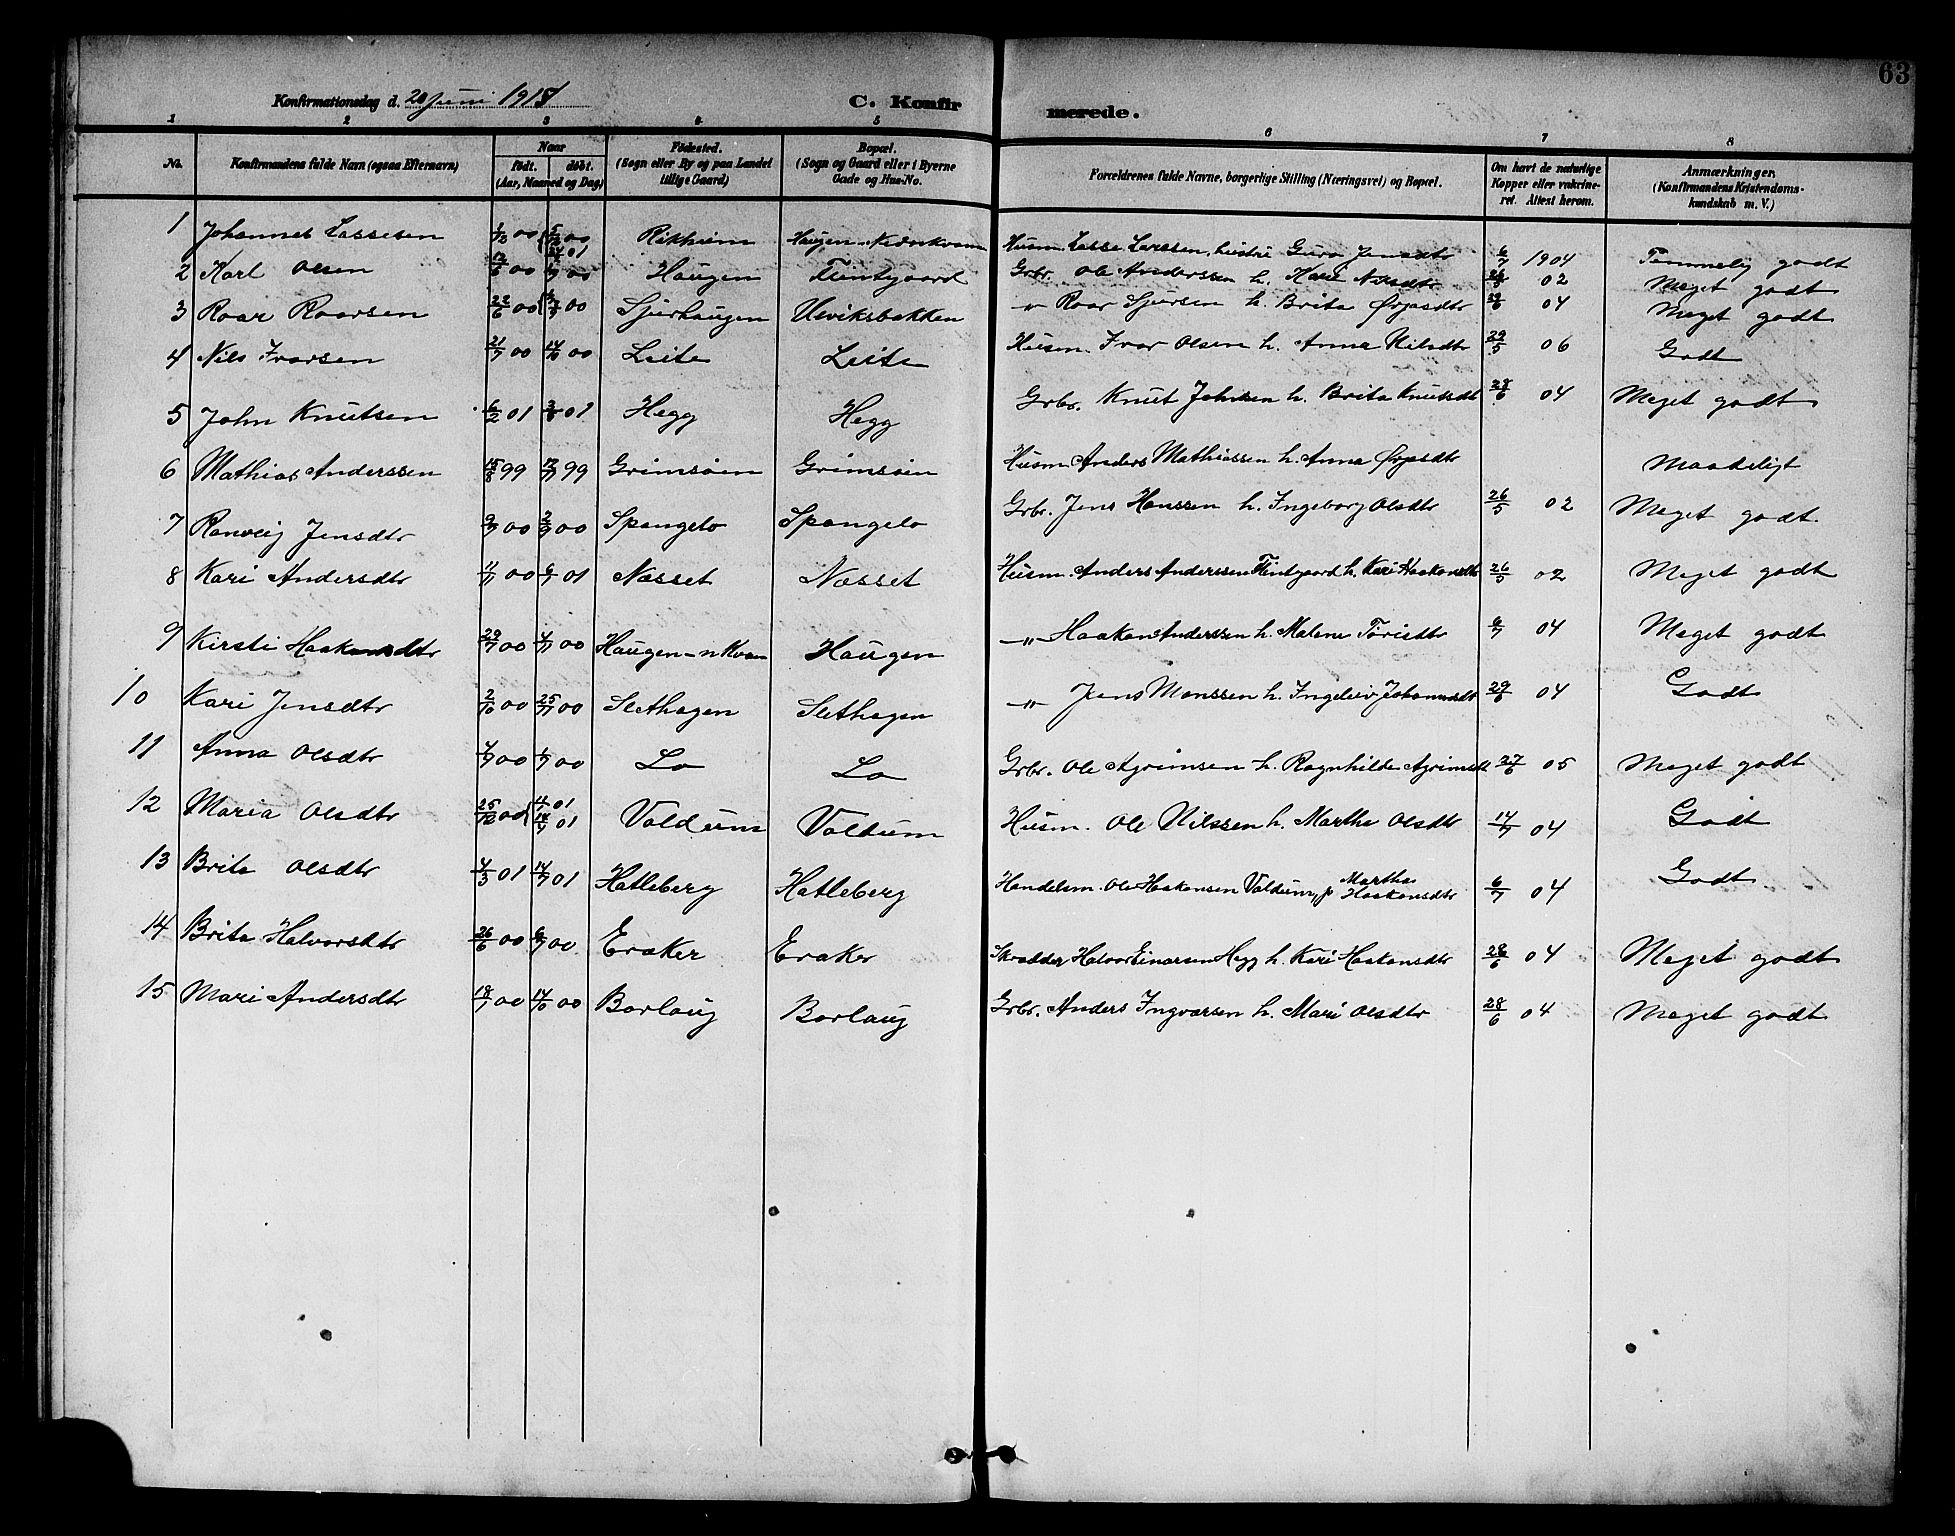 63
Konfirmationsdag d. 20 Juni 1915
C. Konfirmerede.
1 2 3 4 5 6 7 8
No.
Konfirmandens fulde Navn (ogsaa Efternavn)
Naar
født. døbt.
(Aar, Maaned og Dag)
Fødested.
(Sogn eller By og paa Landet
tillige Gaard)
Bopæl.
(Sogn og Gaard eller i Byerne
Gade og Hus-No.
Forældrenes fulde Navne, borgerlige Stilling (Næringsvei) og Bopæl.
Om havt de naturlige
Kopper eller vakcine-
ret. Attest herom.
Anmærkninger.
(Konfirmandens Kristendoms-
kundskab m. V.)
1 Johannes Lassesen 00 00 01 Rikheim Haugen Husm. Lasse Larssen, hustru Guro Jensdtr 6/7 1904 Temmelig godt
2 Karl Olsen 00 00 Haugen Tuntgaard Grbr. Ole Anderssen h. Kari 02 Meget godt
3 Roar Roarsen 22/6 00 00 Sjurhaugen Ulviksbakken " Roar Sjursen h. Brita Ørjasdtr 04 Meget godt
4 Nils Ivarsen 21/7 00 14/10 00 Leite Leite Husm. Ivar Olsen h. Anna Nilsdtr 29/5 06 Godt
5 John Knutsen 6/2 01 01 Hegg Hegg Grbr. Knut Johnsen h. Brita Knutsdt 28/6 04 Meget godt
6 Mathias Anderssen 15/8 99 17/9 99 Grimsøien Grimsøien Husm Anders Mathiassen h. Anna Ørjasdtr Maadeligt
7 Ranveig Jensdtr 00 2/9 00 Spangelo Spangelo Grbr. Jens Hanssen h. Ingeborg Olsdtr 26/5 02 Meget godt.
8 Kari Andersdtr 00 01 Næsset Næsset Husm. Anders Anderssen Tuntgaard h. Kari Haakonsdtr 26/5 02 Meget godt
9 Kirsti Haakonsdtr 29/7 00 00 Haugen-n Kvam Haugen " Haakon Anderssen h. Malene 6/7 04 Meget godt
10 Kari Jensdtr 2/10 00 25/11 00 Slethagen Slethagen " Jens Monssen h. Ingeleiv Johannesdt 29/6 04 Godt
11 Anna Olsdtr 00 00 Lo Lo Grbr. Ole Agrimsen h. Ragnhilde Agrimsdt 27/6 05 Meget godt
12 Maria Olsdtr 25/12 00 01 01 Voldum Voldum Husm. Ole Nilssen h. Martha Olsdtr 14/7 04 Godt
13 Brita Olsdtr 4/3 01 14/7 01 Hatleberg Hatleberg Handelsm. Ole Haakonsen Voldum, p Martha Haakonsdtr 6/7 04 Godt
14 Brita Halvorsdtr 26/6 00 00 Eraker Eraker Skrædder Halvor Einarsen Hegg h. Kari Haakonsdtr 28/6 04 Meget godt
15 Mari Andersdtr 00 14/10 00 Borlaug Borlaug Grbr. Anders Ingvarsen h. Mari Olsdtr 28/6 04 Meget godt